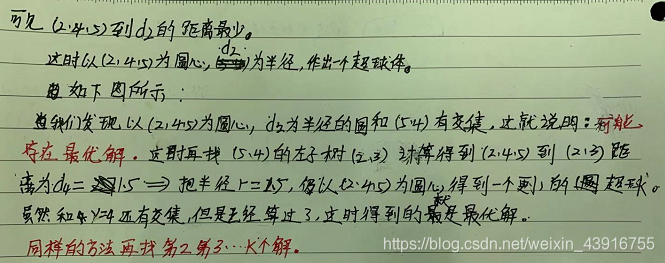 可见 (2,4.5) 到 d2 的距离最少。
这时以 (2,4.5) 为圆心, d2 为半径, 作出一个超球体。
如下图所示:
我们发现 以 (2,4.5) 为圆心, d2 为半径的圆和 (5,4) 有交集, 这就说明: 可能
存在最优解. 这时再找 (5,4) 的左子树 (2,3) 计算得到 (2,4.5) 到 (2,3) 距
离为 d4 = 1.5 => 把半径 r = 1.5, 仍以 (2,4.5) 为圆心, 得到一个 超球。
虽然和 y=4 还有交集, 但是已经算过了, 这时得到的就是最优解。
同样的方法再找第2 第3 … K个解。
https://blog.csdn.net/weixin_43916755